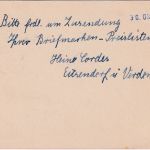 Bitte frdl. um Zusendung
Ihrer Briefmarken-Preislisten
Heino Cordes
Eitzendorf ü. Verden